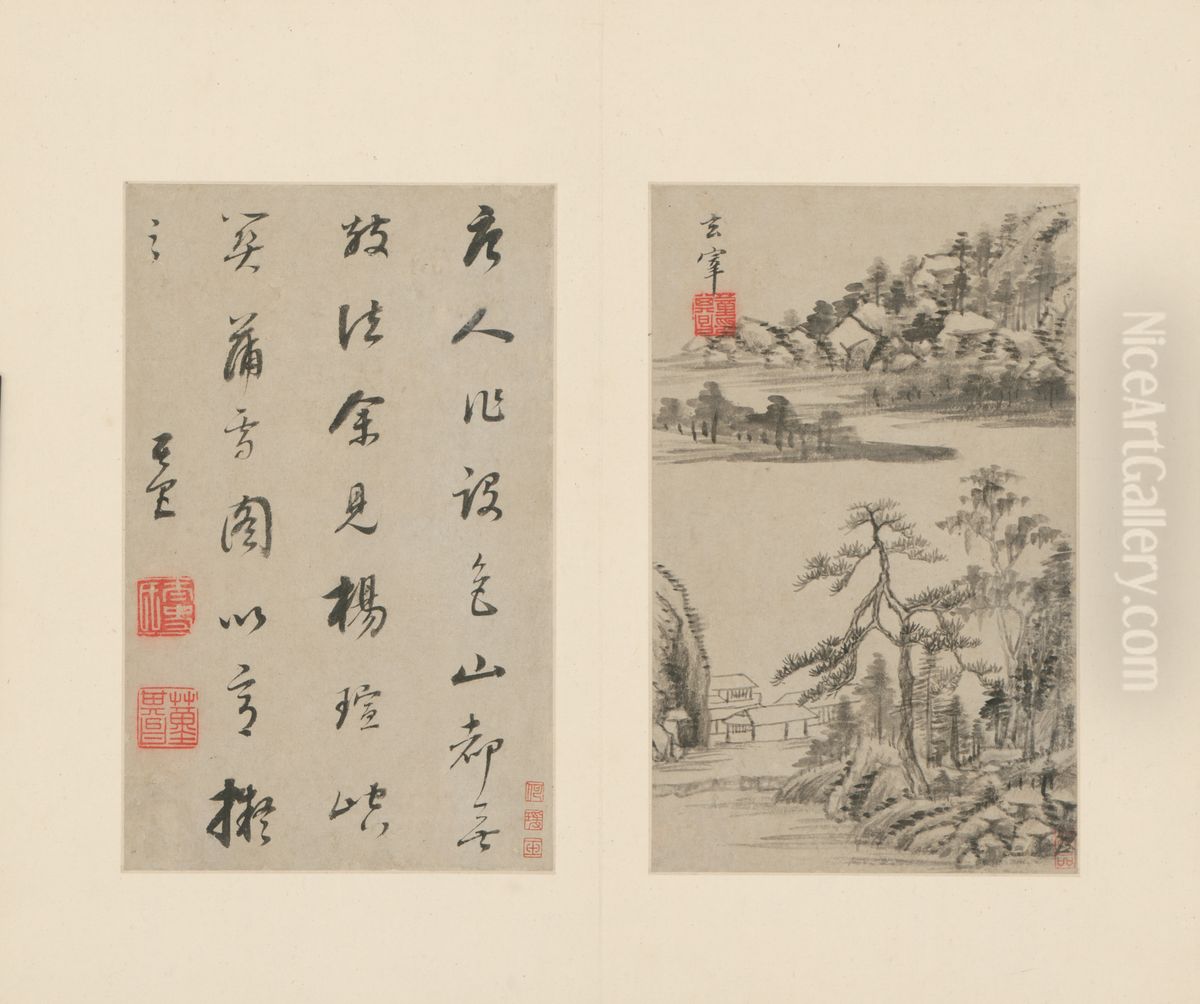 唐人作設色山都無
皴法余見楊瑄峒
關蒲雪圖以意擬
之
玄宰
董其昌
何瑗玉
玄宰
NiceArtGallery.com